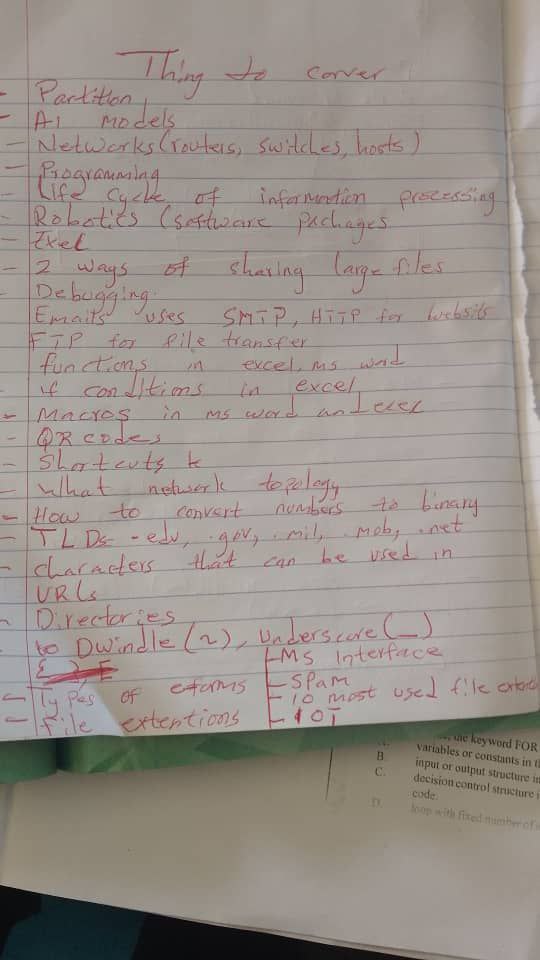 Thing to corver
- Partition
- AI models
- Networks (routers, switches, hosts)
- Programming
- Life Cycle of information processing
- Robotics (software packages
- Exel
- 2 ways of sharing large files
- Debugging.
Emails uses SMTP, HTTP for website
FTP for file transfer
functions in excel, ms word
if conditions in excel
- Macros in ms word and exel
- QR codes
- Shortcuts
- What network topology
- How to convert numbers to binary
- TLDs - edu, .gov, .mil, mob, .net
- characters that can be used in
URLs
- Directories
to Dwindle (~), Underscore (_)
- MS Interface
- Types of eforms - Spam
- file extentions - 10 most used file
- IOT
the keyword FOR
B. variables or constants in
C. input or output structure
decision control structure
code.
D. loop with fixed number of